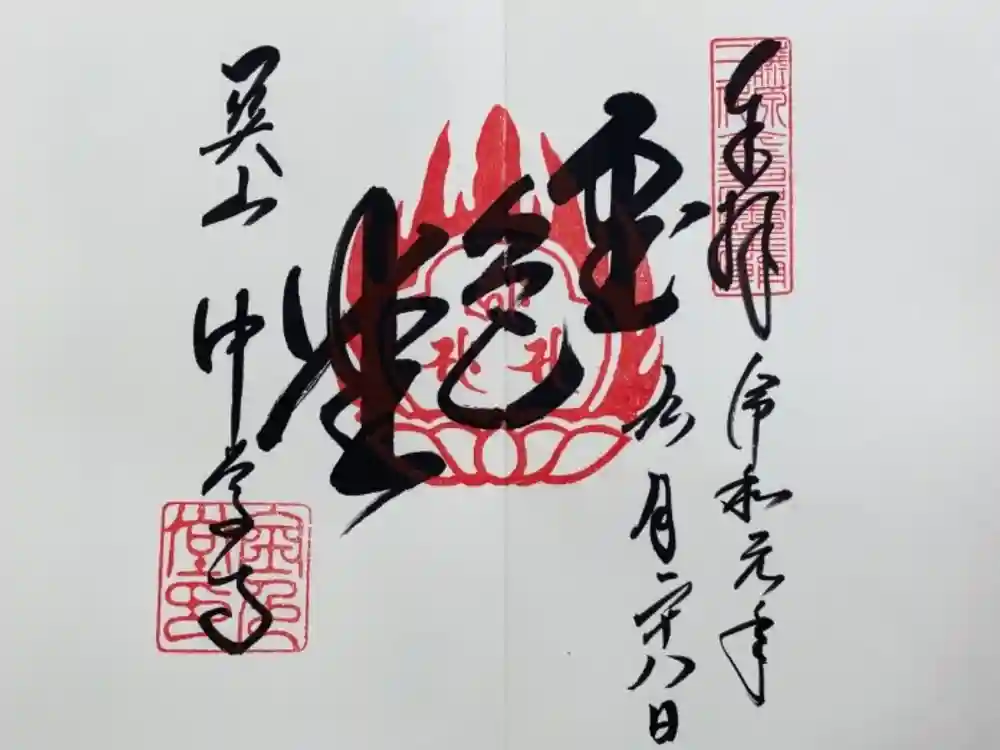 奉拝 令和元年
月二十八日
金色堂
関山 中尊寺
金色堂印